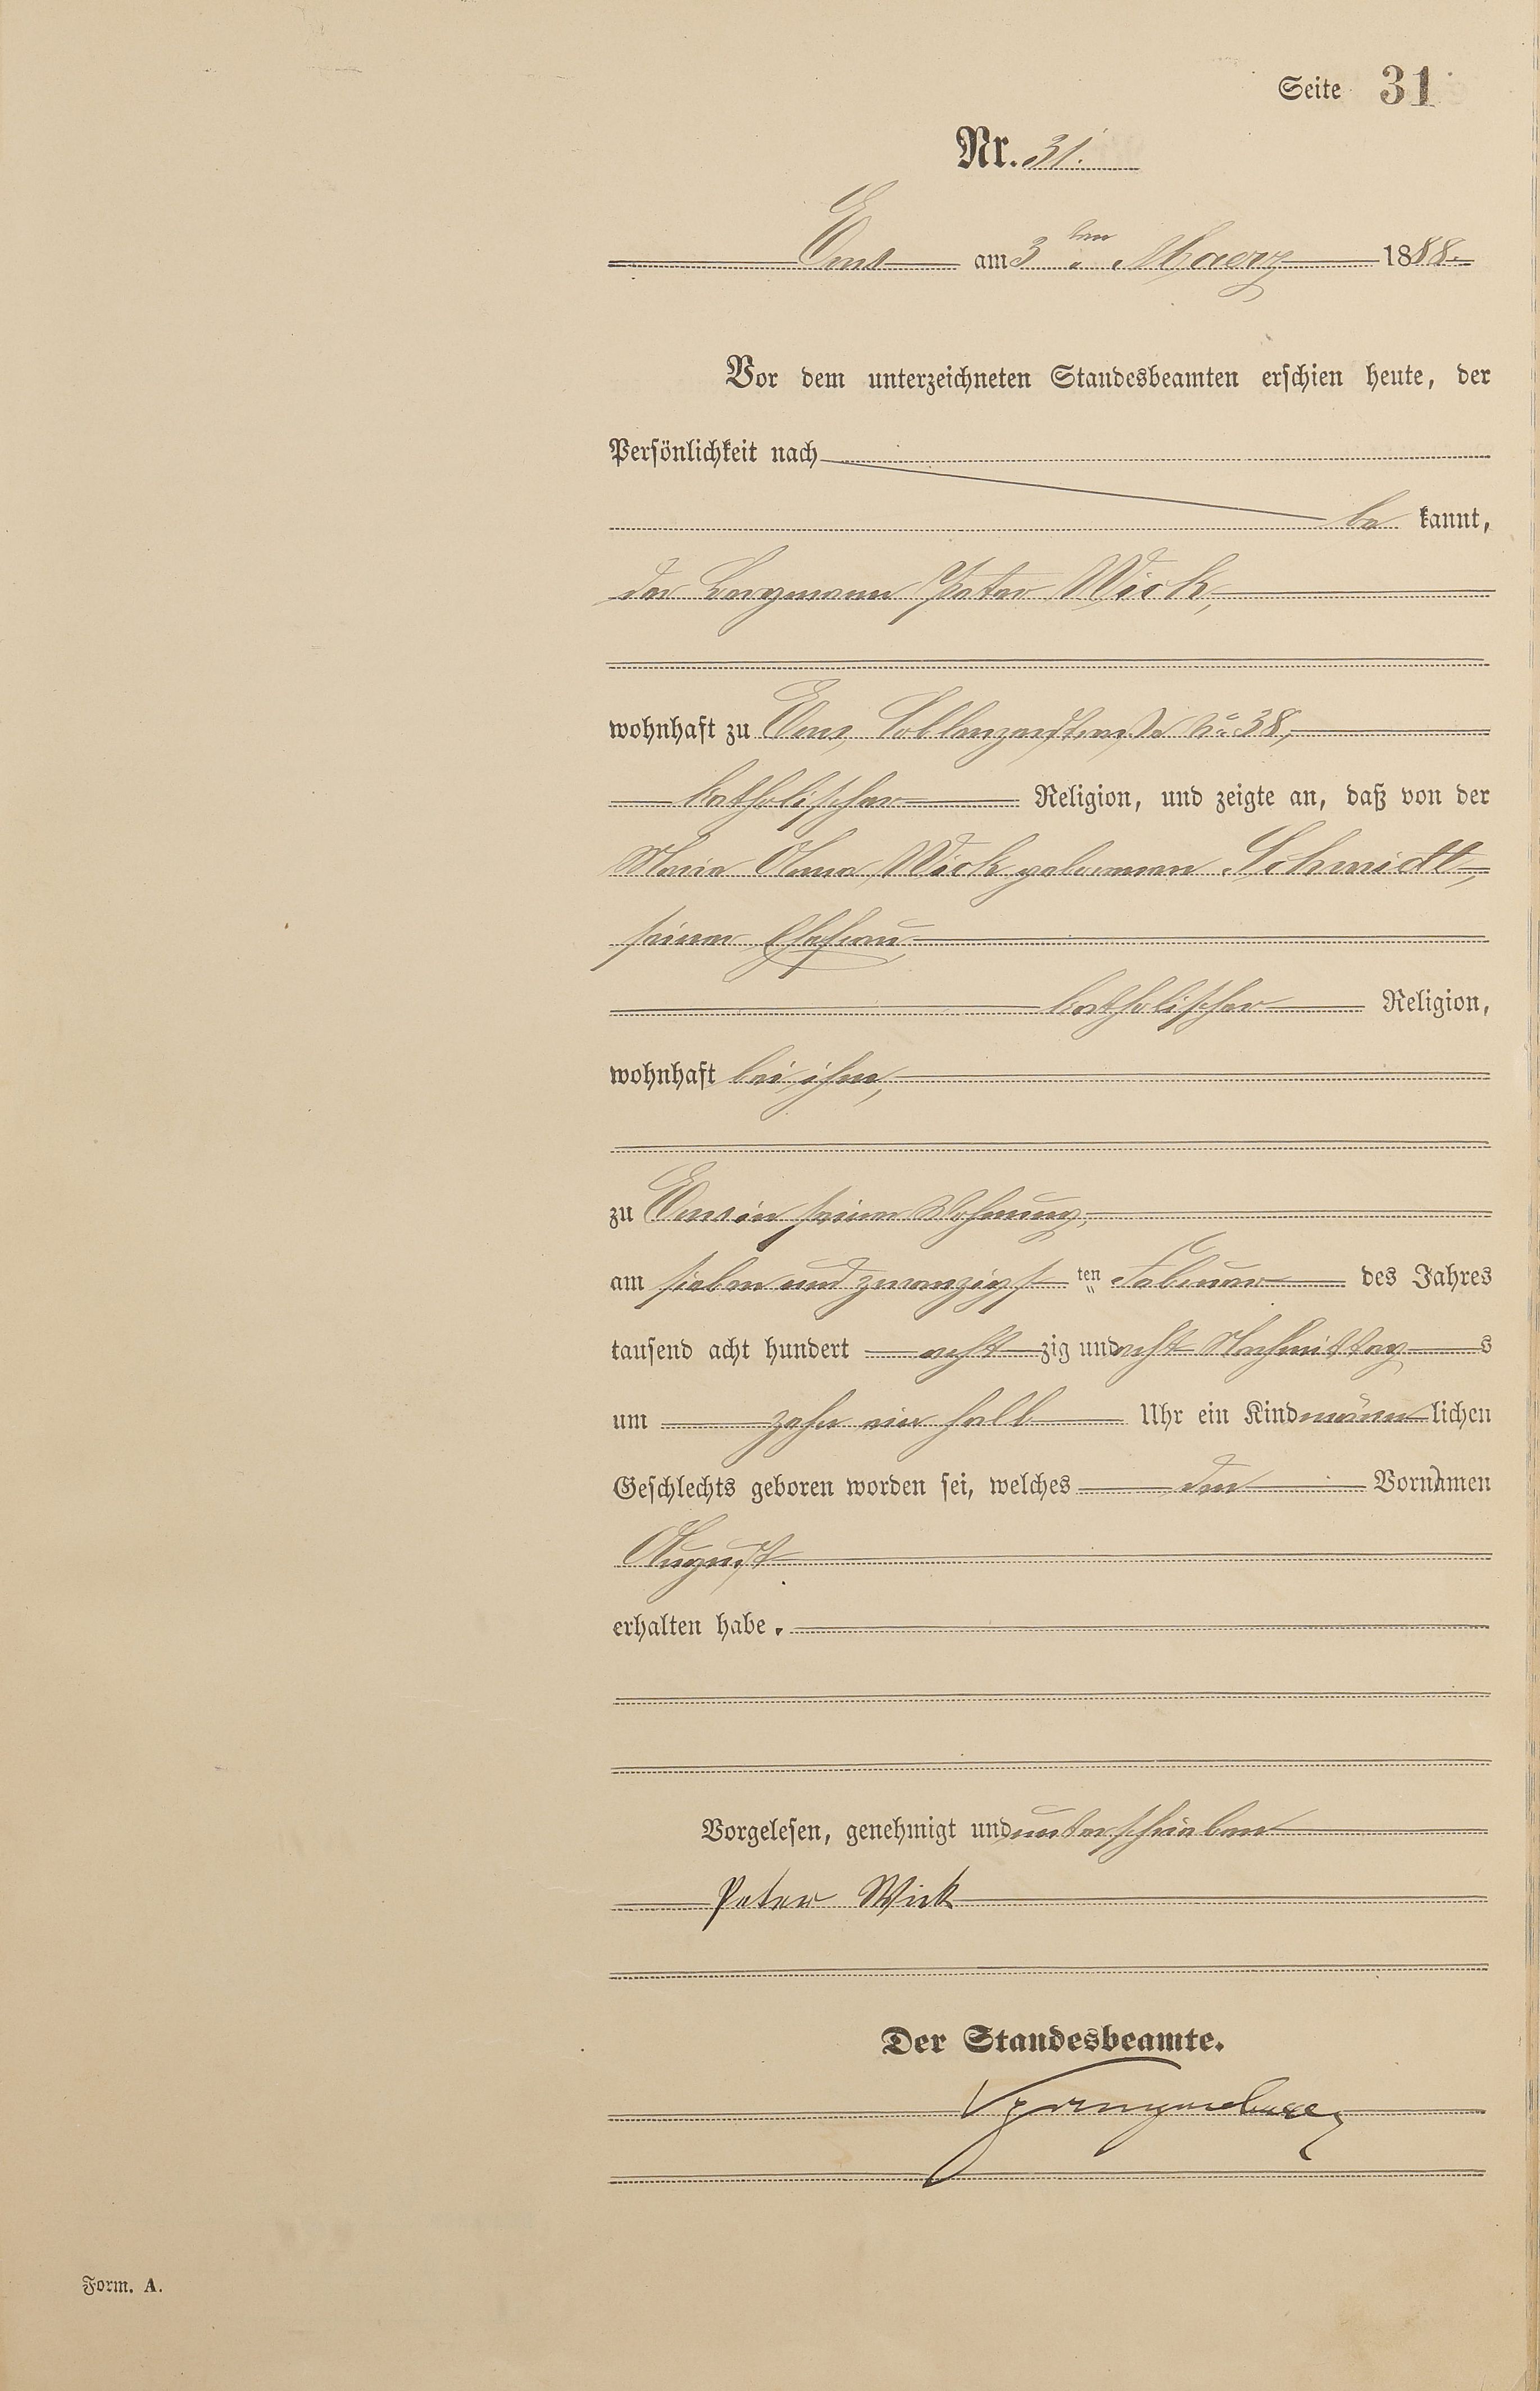 Seite 31
Nr. 31.
Ems am 3ten Maerz 1888.
Vor dem unterzeichneten Standesbeamten erschien heute, der
Persönlichkeit nach
be kannt,
der Bergmann Peter Wick,
wohnhaft zu Ems, Coblenzerstraße No 38,
katholischer Religion, und zeigte an, daß von der
Maria Anna Wick geborenen Schmidt,
seiner Ehefrau,
katholischer Religion,
wohnhaft bei ihm,
zu Ems in seiner Wohnung,
am sieben und zwanzigsten Februar des Jahres
tausend acht hundert achtzig und acht Nachmittags
um zehn ein halb Uhr ein Kind männlichen
Geschlechts geboren worden sei, welches den Vornamen
August
erhalten habe.
Vorgelesen, genehmigt und unterschrieben
Peter Wick
Der Standesbeamte.
Form. A.